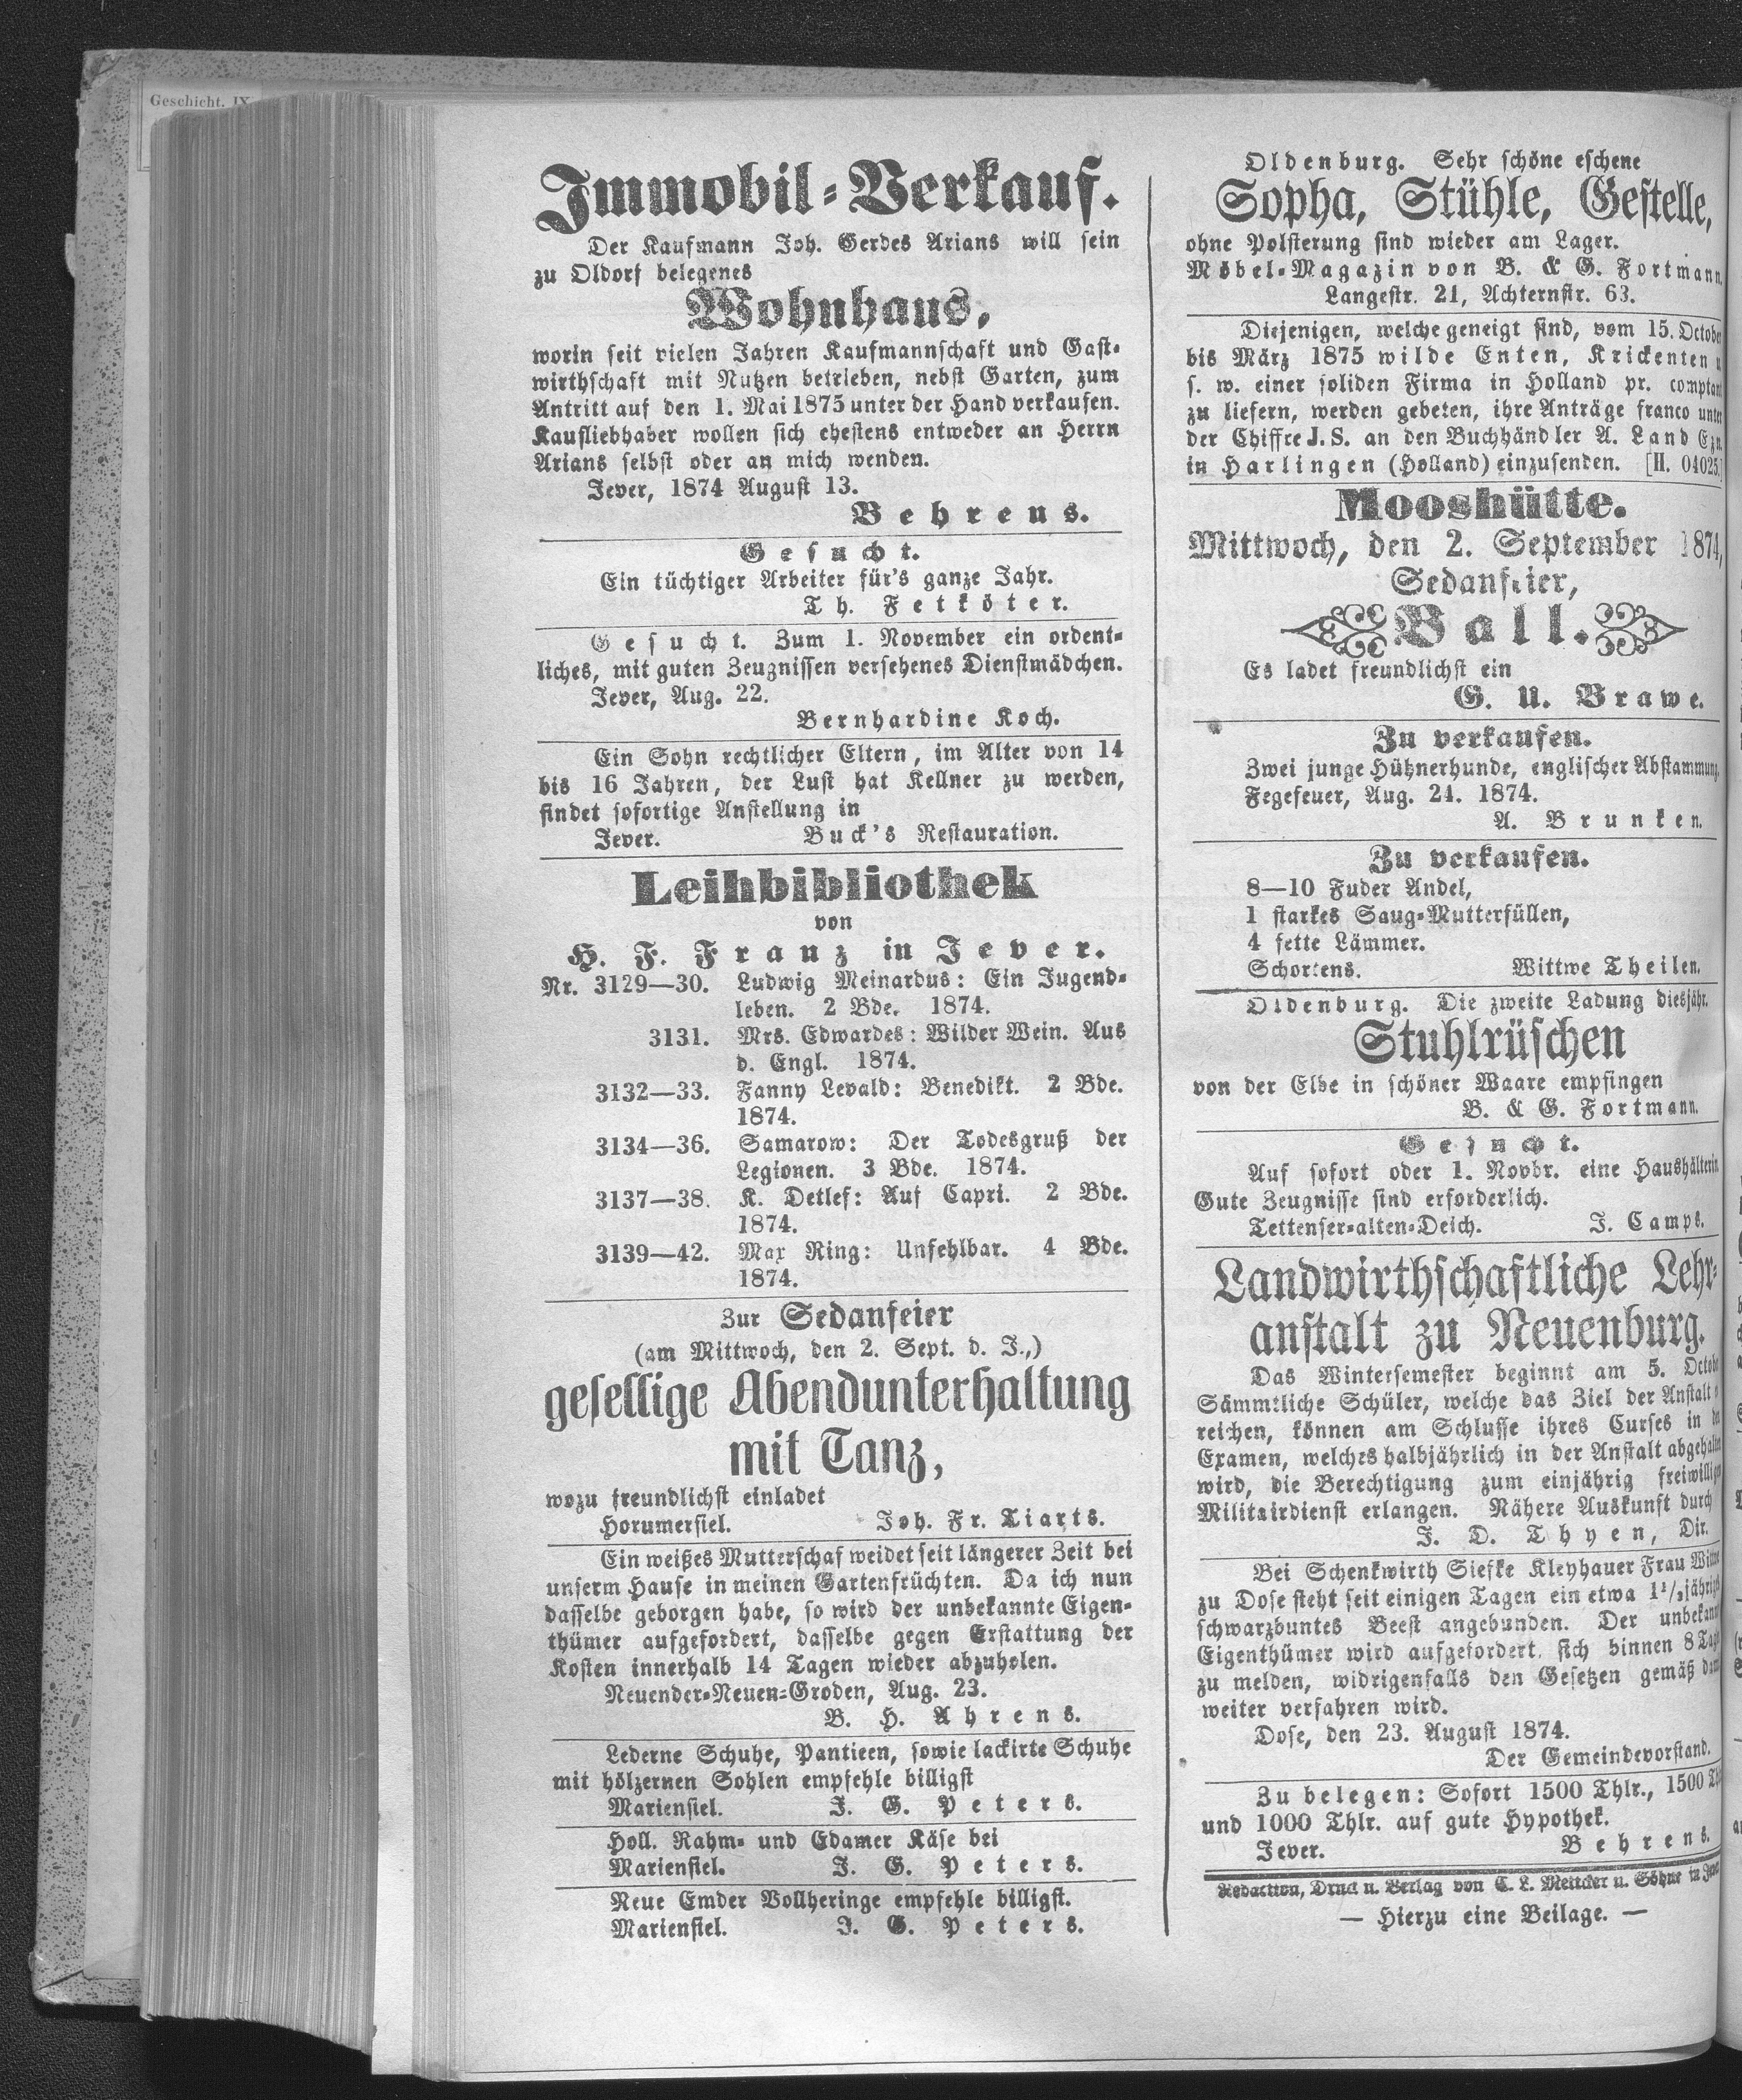 Geschicht. IX
Immobil-Verkauf.
Der Kaufmann Joh. Gerdes Arians will sein
zu Oldorf belegenes
Wohnhaus,
worin seit vielen Jahren Kaufmannschaft und Gast-
wirthschaft mit Nutzen betrieben, nebst Garten, zum
Antritt auf den 1. Mai 1875 unter der Hand verkaufen.
Kaufliebhaber wollen sich ehestens entweder an Herrn
Arians selbst oder an mich wenden.
Jever, 1874 August 13.
Behrens.
Gesucht.
Ein tüchtiger Arbeiter für's ganze Jahr.
Th. Fetköter.
Gesucht. Zum 1. November ein ordent-
liches, mit guten Zeugnissen versehenes Dienstmädchen.
Jever, Aug. 22.
Bernhardine Koch.
Ein Sohn rechtlicher Eltern, im Alter von 14
bis 16 Jahren, der Lust hat Kellner zu werden,
findet sofortige Anstellung in
Jever. Buck's Restauration.
Leihbibliothek
von
H. F. Franz in Jever.
Nr. 3129—30. Ludwig Meinardus: Ein Jugend-
leben. 2 Bde. 1874.
3131. Mrs. Edwardes: Wilder Wein. Aus
d. Engl. 1874.
3132—33. Fanny Levald: Benedikt. 2 Bde.
1874.
3134—36. Samarow: Der Todesgruß der
Legionen. 3 Bde. 1874.
3137—38. K. Detlef: Auf Capri. 2 Bde.
1874.
3139—42. Max Ring: Unfehlbar. 4 Bde.
1874.
Zur Sedanfeier
(am Mittwoch, den 2. Sept. d. J.,)
gesellige Abendunterhaltung
mit Tanz,
wozu freundlichst einladet
Horumersiel. Joh. Fr. Tiarts.
Ein weißes Mutterschaf weidet seit längerer Zeit bei
unserm Hause in meinen Gartenfrüchten. Da ich nun
dasselbe geborgen habe, so wird der unbekannte Eigen-
thümer aufgefordert, dasselbe gegen Erstattung der
Kosten innerhalb 14 Tagen wieder abzuholen.
Neuender-Neuen-Groden, Aug. 23.
B. H. Ahrens.
Lederne Schuhe, Pantieen, sowie lackirte Schuhe
mit hölzernen Sohlen empfehle billigst
Mariensiel. J. G. Peters.
Holl. Rahm- und Edamer Käse bei
Mariensiel. J. G. Peters.
Neue Emder Vollheringe empfehle billigst.
Mariensiel. J. G. Peters.
Oldenburg. Sehr schöne eschene
Sopha, Stühle, Gestelle,
ohne Polsterung sind wieder am Lager.
Möbel-Magazin von B. & G. Fortmann,
Langestr. 21, Achternstr. 63.
Diejenigen, welche geneigt sind, vom 15. October
bis März 1875 wilde Enten, Krickenten u
s. w. einer soliden Firma in Holland pr. comptant
zu liefern, werden gebeten, ihre Anträge franco unter
der Chiffre J. S. an den Buchhändler A. Land Ezn.
in Harlingen (Holland) einzusenden. [H. 04025.]
Mooshütte.
Mittwoch, den 2. September 1874,
Sedanfeier,
Ball.
Es ladet freundlichst ein
G. U. Brawe.
Zu verkaufen.
Zwei junge Hühnerhunde, englischer Abstammung.
Fegefeuer, Aug. 24. 1874.
A. Brunken.
Zu verkaufen.
8—10 Fuder Andel,
1 starkes Saug-Mutterfüllen,
4 fette Lämmer.
Schortens. Wittwe Theilen.
Oldenburg. Die zweite Ladung diesjähr.
Stuhlrüschen
von der Elbe in schöner Waare empfingen
B. & G. Fortmann.
Gesucht.
Auf sofort oder 1. Novbr. eine Haushälterin
Gute Zeugnisse sind erforderlich.
Tettenser-alten-Deich. J. Camps.
Landwirthschaftliche Lehr-
anstalt zu Neuenburg.
Das Wintersemester beginnt am 5. Octob
Sämmtliche Schüler, welche das Ziel der Anstalt
reichen, können am Schlusse ihres Curses in
Examen, welches halbjährlich in der Anstalt abgehalten
wird, die Berechtigung zum einjährig freiwilligen
Militairdienst erlangen. Nähere Auskunft durch
J. D. Thyen, Dir.
Bei Schenkwirth Siefke Kleyhauer Frau Wittwe
zu Dose steht seit einigen Tagen ein etwa 1½jährig
schwarzbuntes Beest angebunden. Der unbekannt
Eigenthümer wird aufgefordert, sich binnen 8 Tagen
zu melden, widrigenfalls den Gesetzen gemäß
weiter verfahren wird.
Dose, den 23. August 1874.
Der Gemeindevorstand.
Zu belegen: Sofort 1500 Thlr., 1500 Thlr
und 1000 Thlr. auf gute Hypothek.
Jever. Behrens.
Redaction, Druck u. Verlag von C. L. Mettcker u. Söhne in Jever
— Hierzu eine Beilage. —